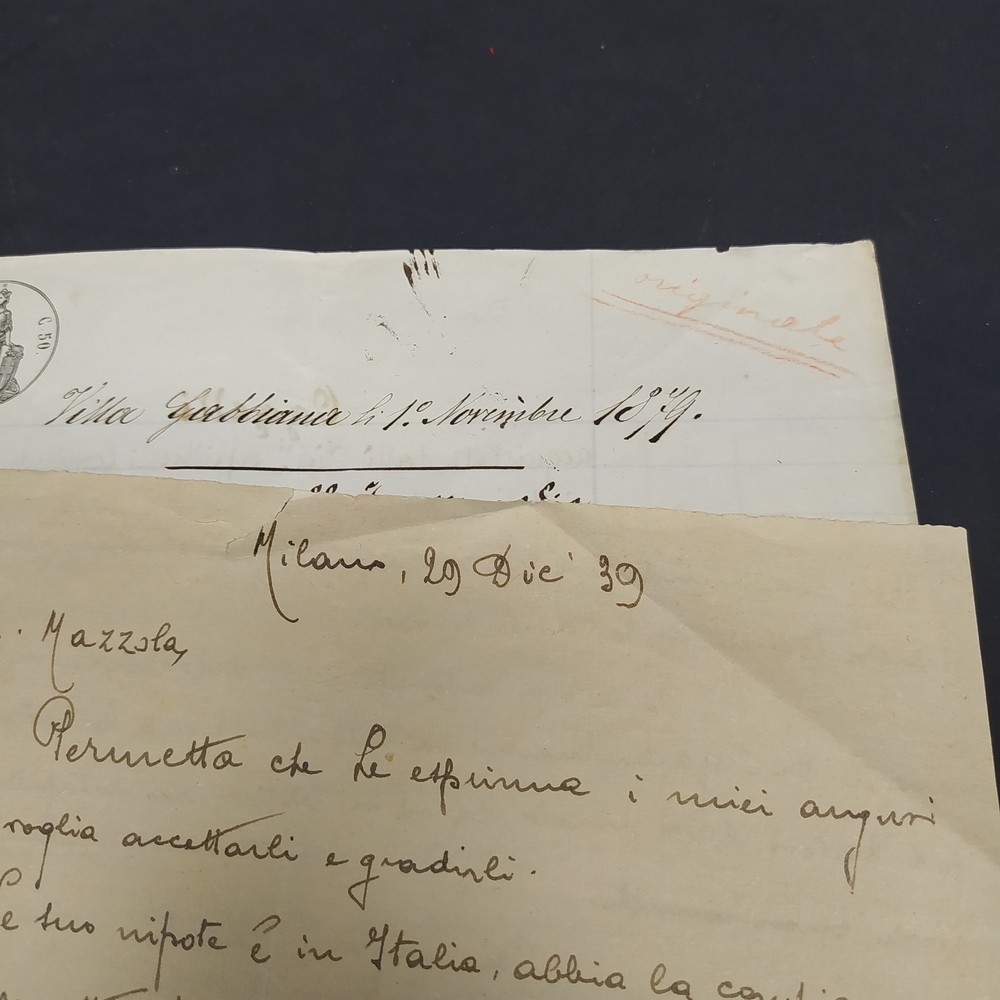 originale
C. 50.
Villa Gabbiana li 1º Novembre 1879.
Milano, 29 Dic' 39
Mazzola,
Permetta che Le esprima i miei auguri
voglia accettarli e gradirli.
suo nipote è in Italia, abbia la